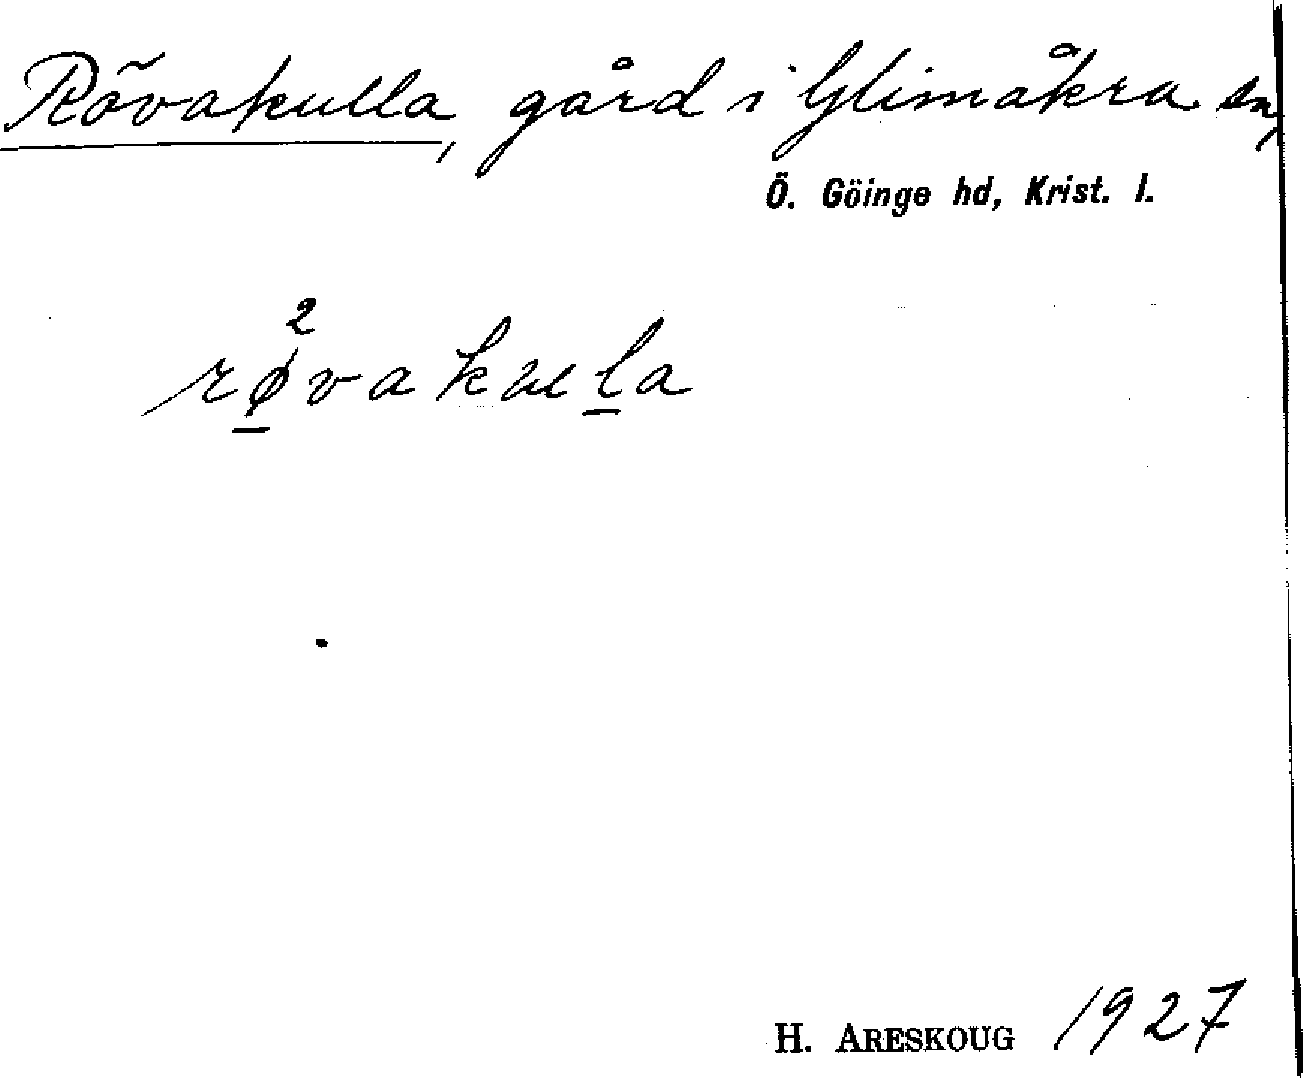 Rövakulla, gård i Glimåkra sn,
Ö. Göinge hd, Krist. l.
2
røvakulla
H. ARESKOUG 1927